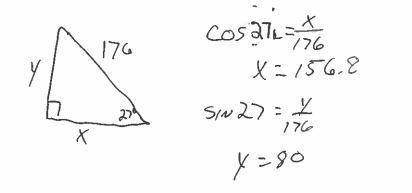 y
176
27°
x
cos 27 = x/176
x = 156.8
sin 27 = y/176
y = 80